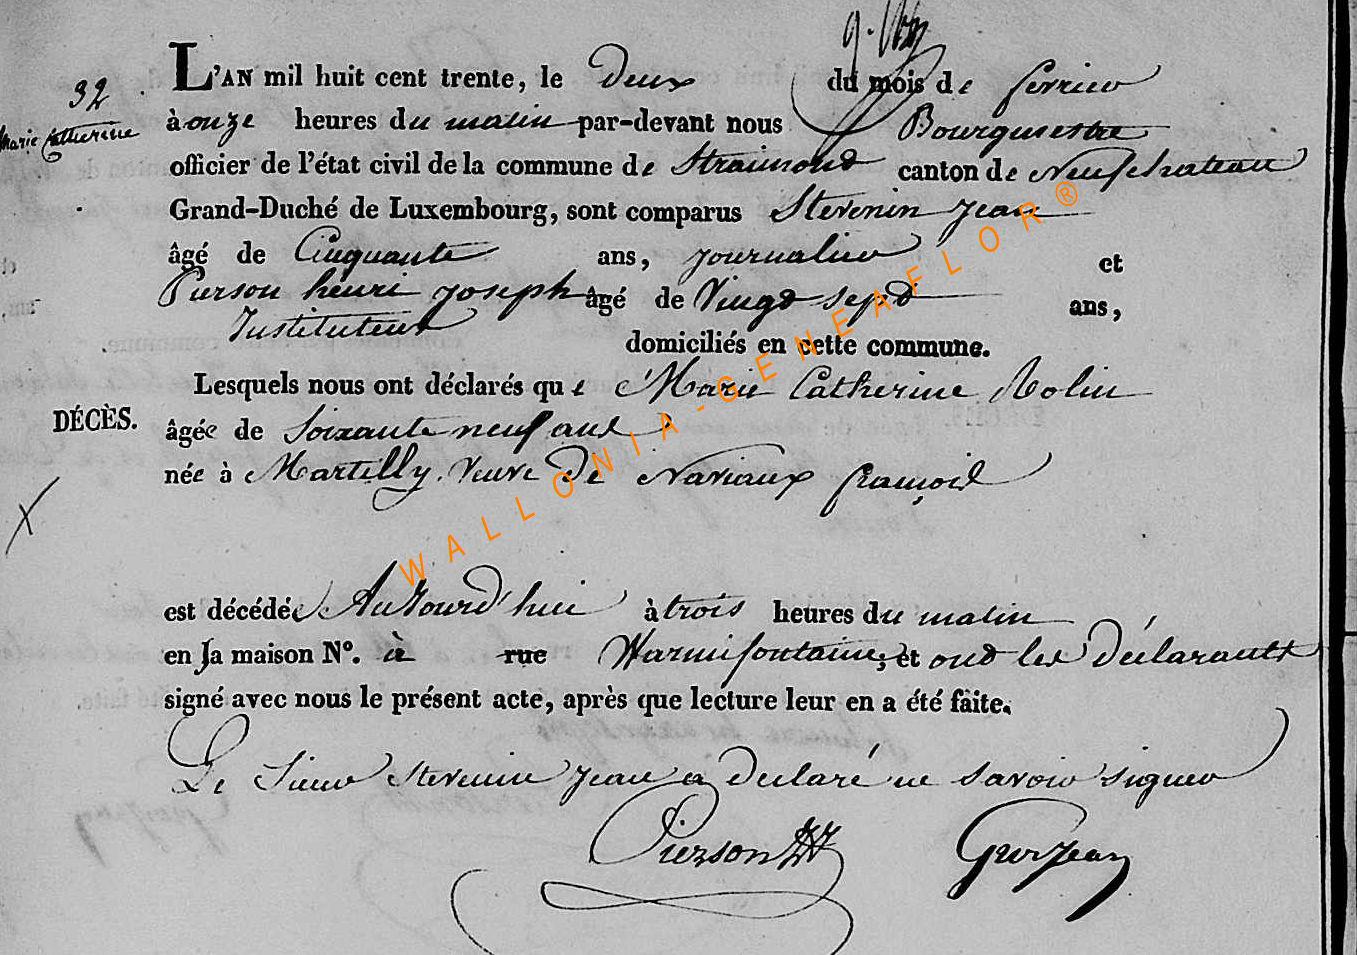 32
Marie Catherine
L'AN mil huit cent trente, le deux du mois de fevrier
à onze heures du matin par-devant nous Bourgmestre
officier de l'état civil de la commune de Straimond canton de Neufchateau
Grand-Duché de Luxembourg, sont comparus Stevenin Jean
âgé de Cinquante ans, journalier et
Pierson henri joseph âgé de Vingt sept ans,
Instituteur domiciliés en cette commune.
Lesquels nous ont déclarés que Marie Catherine Rolin
DÉCÈS.
âgée de Soixante neuf ans
née à Martilly. Veuve De Naviaux françois
est décédée Aujourd'hui à trois heures du matin
en la maison N°. à rue Warmifontaine; et ont les Déclarants
signé avec nous le présent acte, après que lecture leur en a été faite.
Le Sieur Stevenin jean a declaré ne savoir signer
Pierson
WALLONIA-GENEAFLOR®